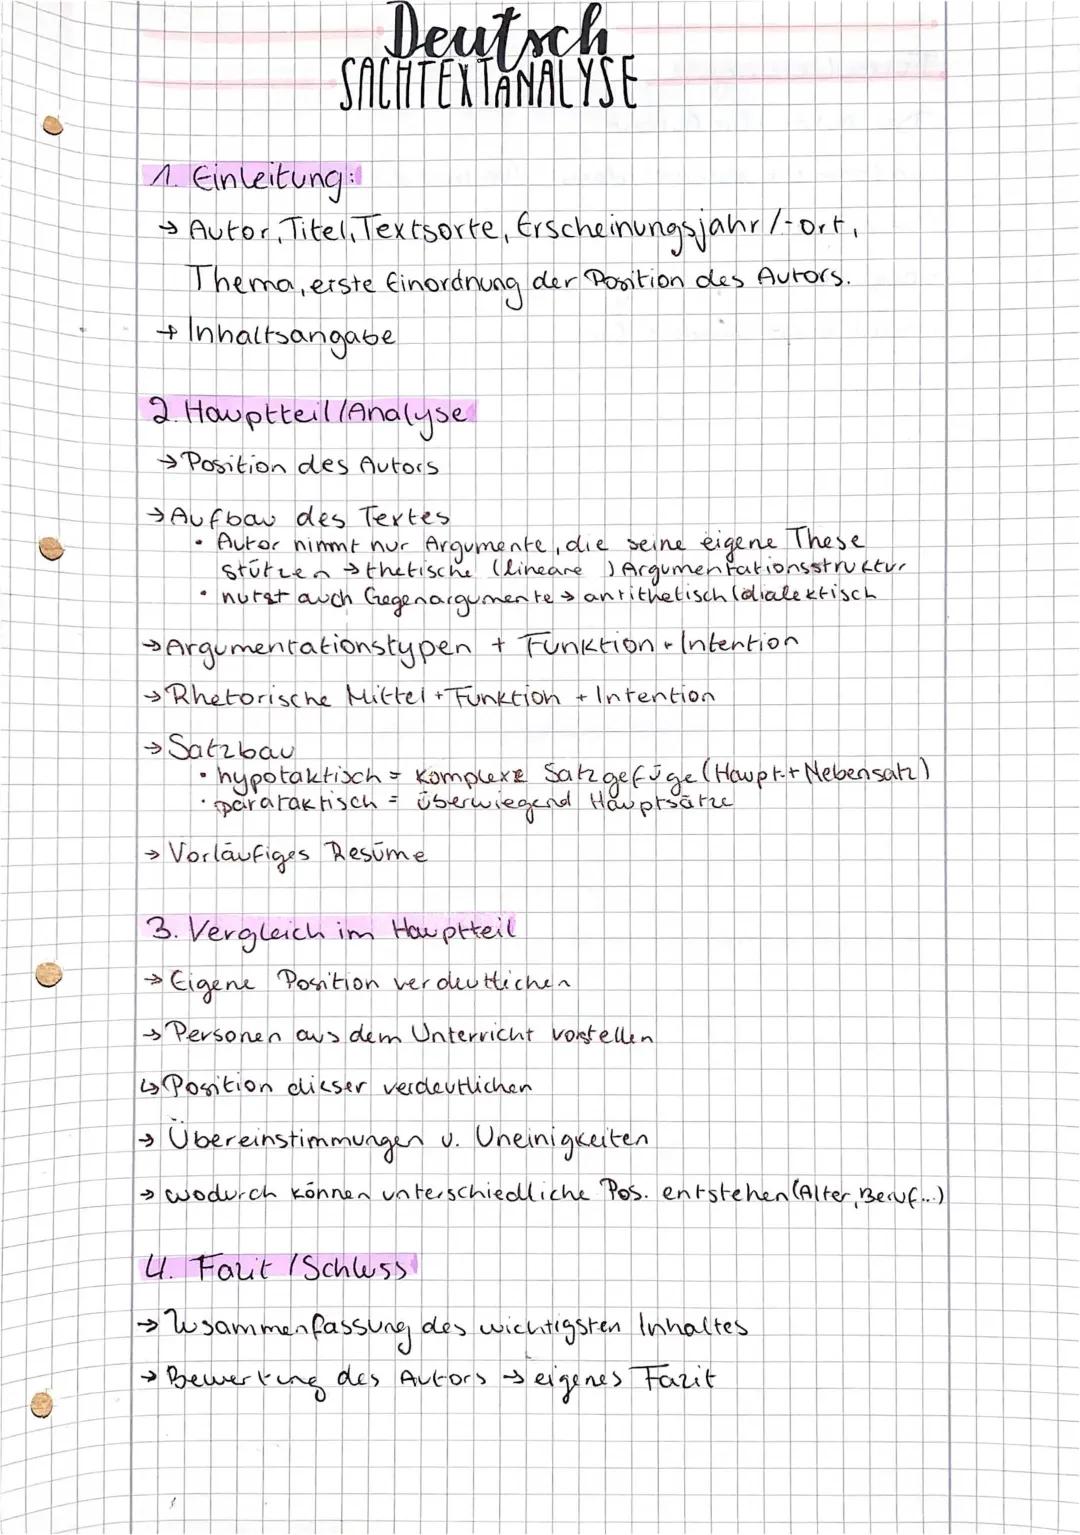 Deutsch
SACHTEXTANALYSE
1. Einleitung:
→ Autor, Titel, Textsorte, Erscheinungsjahr/-ort,
Thema, erste Einordnung der Position des Autors.
→ Inhaltsangabe
2. Hauptteil/Analyse
→ Position des Autors
→ Aufbau des Textes
• Autor nimmt nur Argumente, die seine eigene These
stützen → thetische (lineare) Argumentationsstruktur
• nutzt auch Gegenargumente → antithetisch (dialektisch
→ Argumentationstypen + Funktion + Intention
→ Rhetorische Mittel + Funktion + Intention
→ Satzbau
• hypotaktisch = komplexe Satzgefüge (Haupt- + Nebensatz)
• parataktisch = überwiegend Hauptsätze
→ Vorläufiges Resüme
3. Vergleich im Hauptteil
→ Eigene Position verdeutlichen
→ Personen aus dem Unterricht vorstellen
↳ Position dieser verdeutlichen
→ Übereinstimmungen u. Uneinigkeiten
→ wodurch können unterschiedliche Pos. entstehen (Alter, Beruf...)
4. Fazit/Schluss
→ Zusammenfassung des wichtigsten Inhaltes
→ Bewertung des Autors → eigenes Fazit